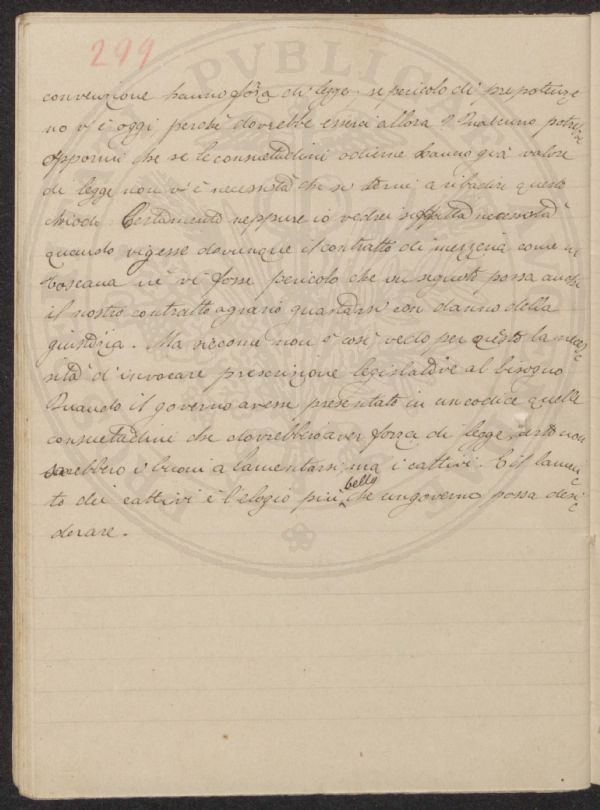 299
convenzione hanno forza di legge: se pericolo di prepotenze
no v'è oggi perchè dovrebbe esserci allora? Qualcuno potrebbe
opporrmi che se le consuetudini odierne hanno già valore
di legge non v'è necessità che si torni a ribadire questo
chiodo. Certamente neppure io vedrei siffatta necessità
quando vigesse dovunque il contratto di mezzeria come in
Toscana nè vi fosse pericolo che in seguito possa anche
il nostro contratto agrario guastarsi con danno della
giustizia. Ma siccome non è così vedo per questo la neces
sità d'invocare prescrizione legislative al bisogno
Quando il governo avesse presentato in un codice quelle
consuetudini che dovrebbero aver forza di legge, certo non
sarebbero i buoni a lamentarsi ma i cattivi. E il lamen
to dei cattivi è l'elogio più bello che un governo possa desi
derare.